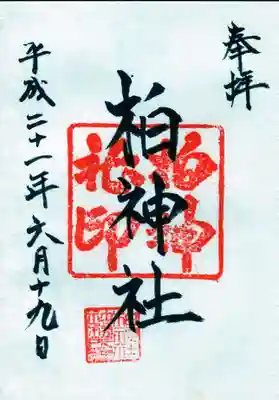 奉拝
柏神社
柏神
社印
平成二十一年六月十九日